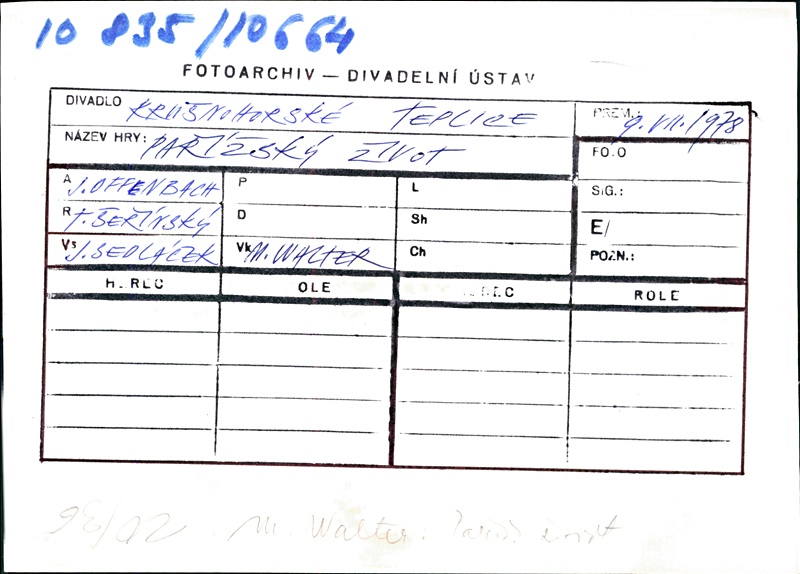 10 835/10664
FOTOARCHIV — DIVADELNÍ ÚSTAV
DIVADLO KRUŠNOHORSKÉ TEPLICE
PREM.: 9. VII. 1978
NÁZEV HRY: PAŘÍŽSKÝ ŽIVOT
FO.O
A J. OFFENBACH P L
SIG.:
R F. ŠEŘÍNSKÝ D Sh
E/
Vs J. SEDLÁČEK Vk M. WALTER Ch
POZN.:
H.REC OLE REC ROLE
M. Walter: